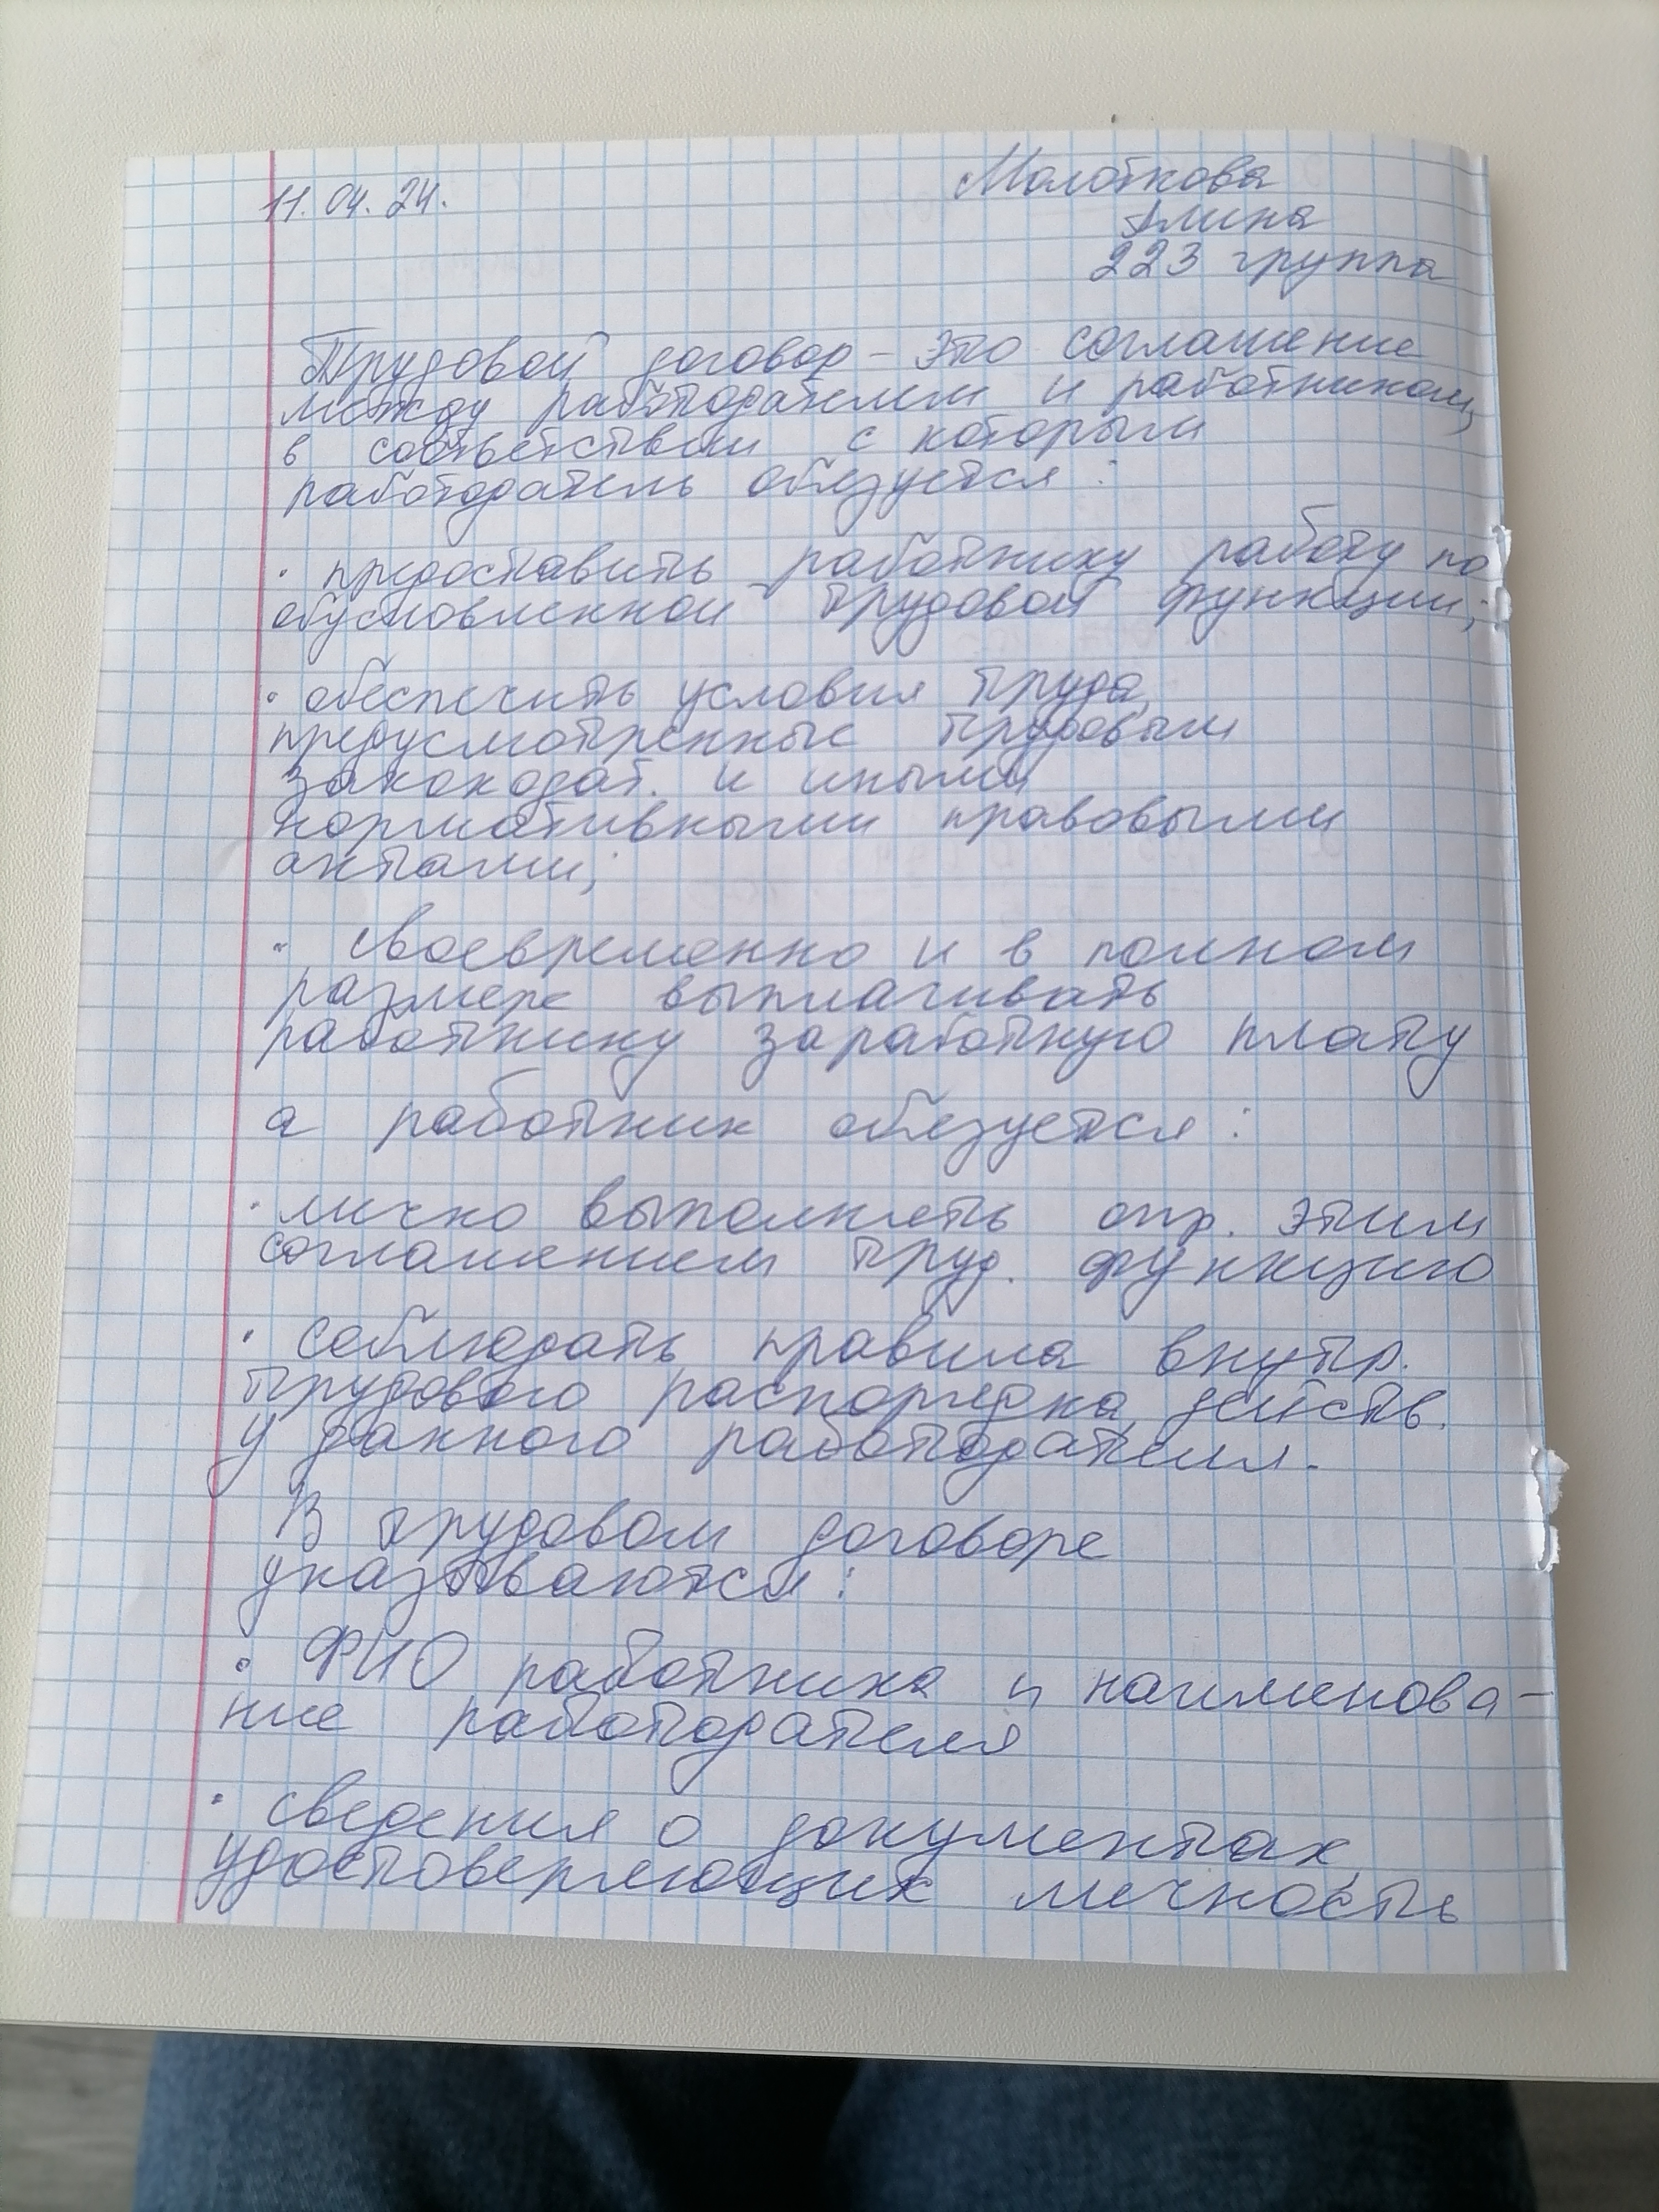 11.04.24.
Молоткова
Алина
223 группа
Трудовой договор - это соглашение
между работодателем и работником,
в соответствии с которым
работодатель обязуется :
· предоставить работнику работу по
обусловленной трудовой функции;
· обеспечить условия труда,
предусмотренные трудовым
законодат. и иными
нормативными правовыми
актами;
· своевременно и в полном
размере выплачивать
работнику заработную плату
а работник обязуется :
· лично выполнять опр. этим
соглашением труд. функцию
· соблюдать правила внутр.
трудового распорядка, действ.
у данного работодателя.
В трудовом договоре
указываются :
· ФИО работника и наименова-
ние работодателя
· сведения о документах,
удостоверяющих личность